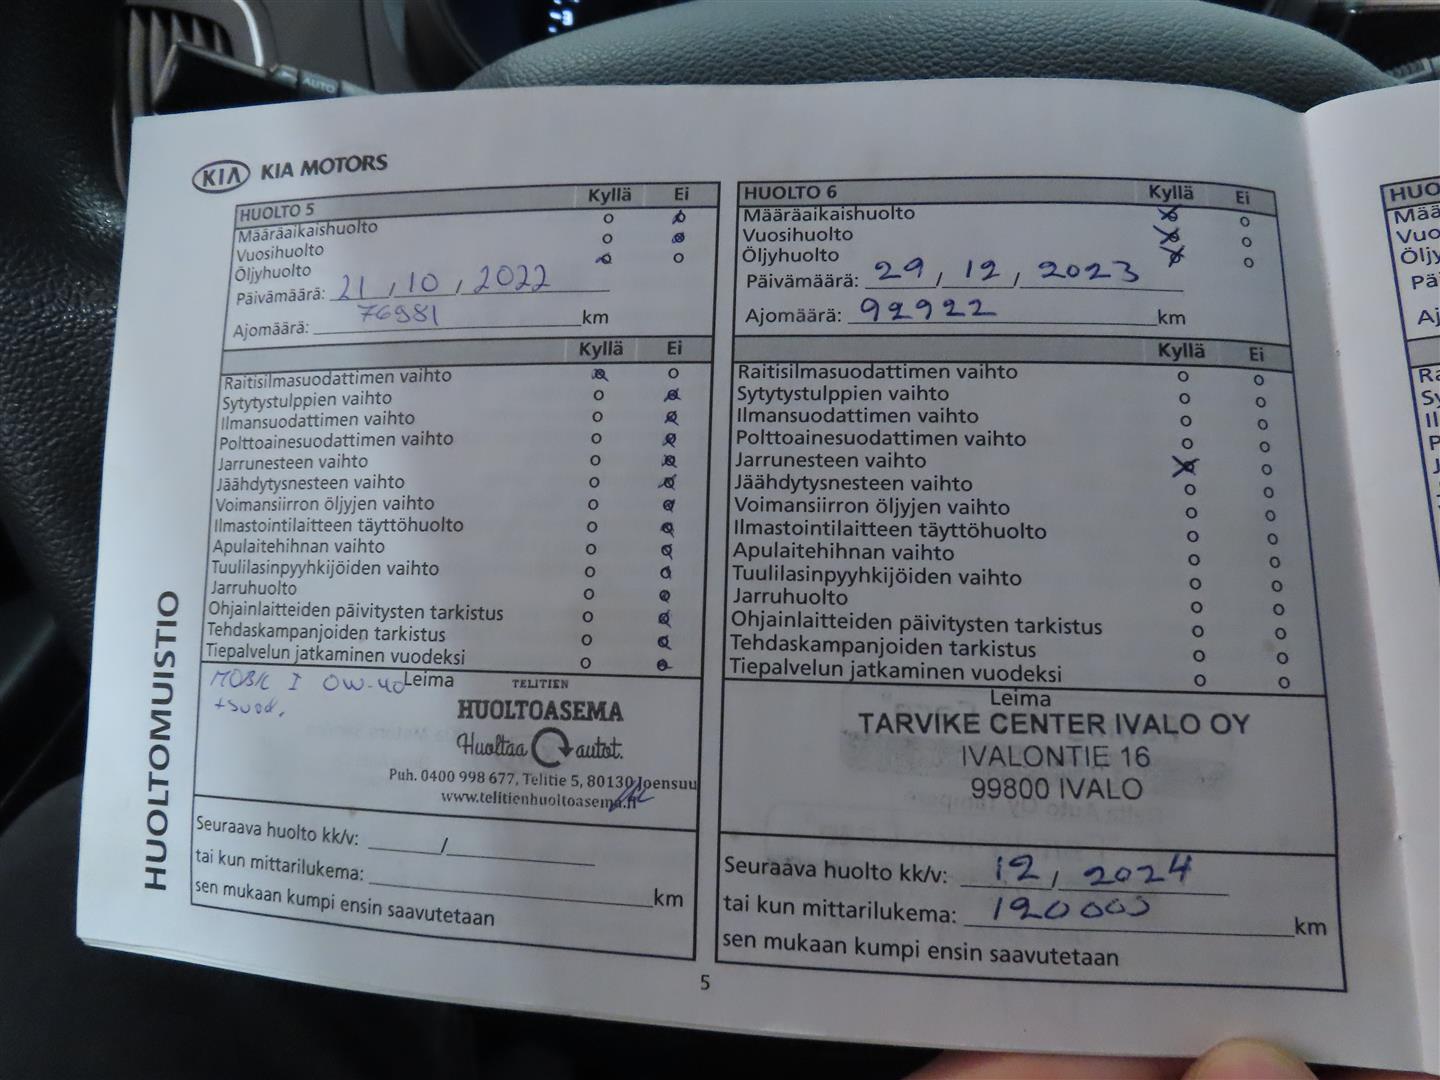 AUTO
KIA KIA MOTORS
HUOLTO 5 Kyllä Ei
Määräaikaishuolto o o
Vuosihuolto o o
Öljyhuolto o o
Päivämäärä: 21, 10, 2022
Ajomäärä: 76981 km
Kyllä Ei
Raitisilmasuodattimen vaihto o o
Sytytystulppien vaihto o o
Ilmansuodattimen vaihto o o
Polttoainesuodattimen vaihto o o
Jarrunesteen vaihto o o
Jäähdytysnesteen vaihto o o
Voimansiirron öljyjen vaihto o o
Ilmastointilaitteen täyttöhuolto o o
Apulaitehihnan vaihto o o
Tuulilasinpyyhkijöiden vaihto o o
Jarruhuolto o o
Ohjainlaitteiden päivitysten tarkistus o o
Tehdaskampanjoiden tarkistus o o
Tiepalvelun jatkaminen vuodeksi o o
MOBIL 1 0W-40 Leima
+suod.
TELITIEN
HUOLTOASEMA
Huoltaa autot.
Puh. 0400 998 677, Telitie 5, 80130 Joensuu
www.telitienhuoltoasema.fi
Seuraava huolto kk/v: /
tai kun mittarilukema: km
sen mukaan kumpi ensin saavutetaan
HUOLTO 6 Kyllä Ei
Määräaikaishuolto o o
Vuosihuolto o o
Öljyhuolto o o
Päivämäärä: 29, 12, 2023
Ajomäärä: 92922 km
Kyllä Ei
Raitisilmasuodattimen vaihto o o
Sytytystulppien vaihto o o
Ilmansuodattimen vaihto o o
Polttoainesuodattimen vaihto o o
Jarrunesteen vaihto o o
Jäähdytysnesteen vaihto o o
Voimansiirron öljyjen vaihto o o
Ilmastointilaitteen täyttöhuolto o o
Apulaitehihnan vaihto o o
Tuulilasinpyyhkijöiden vaihto o o
Jarruhuolto o o
Ohjainlaitteiden päivitysten tarkistus o o
Tehdaskampanjoiden tarkistus o o
Tiepalvelun jatkaminen vuodeksi o o
Leima
TARVIKE CENTER IVALO OY
IVALONTIE 16
99800 IVALO
Seuraava huolto kk/v: 12, 2024
tai kun mittarilukema: 120000 km
sen mukaan kumpi ensin saavutetaan
HUOLTOMUISTIO
5